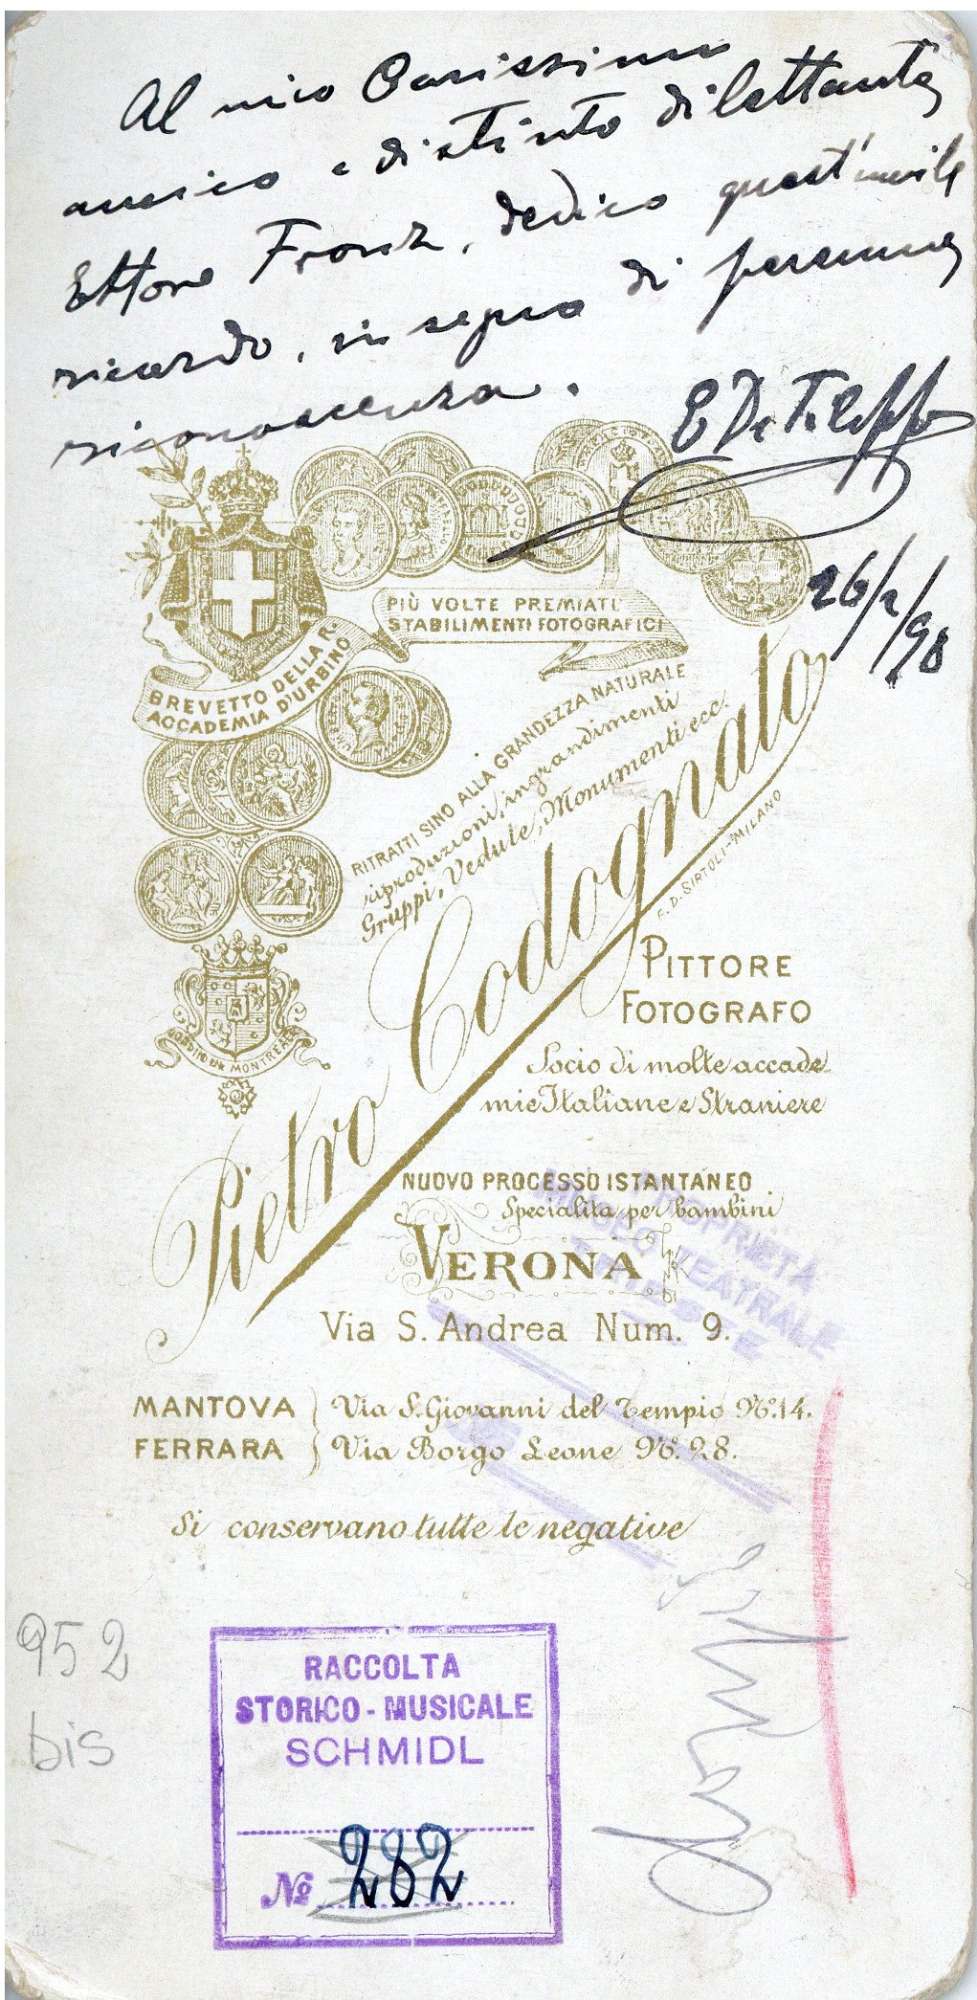 Al mio Carissimo
amico e distinto dilettante
Ettore Fronz, dedico quest'umile
ricordo, in segno di perenne
riconoscenza.
E De Filippo
26/2/98
PIÙ VOLTE PREMIATI
STABILIMENTI FOTOGRAFICI
BREVETTO DELLA R.
ACCADEMIA D'URBINO
RITRATTI SINO ALLA GRANDEZZA NATURALE
riproduzioni, ingrandimenti
Gruppi, Vedute, Monumenti ecc.
Pietro Codognato
F. D. SIRTOLI-MILANO
PITTORE
FOTOGRAFO
Socio di molte accade-
mie Italiane e Straniere
MONTREAL
NUOVO PROCESSO ISTANTANEO
Specialita per bambini
VERONA
Via S. Andrea Num. 9.
PROPRIETÀ
MUSEO TEATRALE
TRIESTE
MANTOVA } Via S. Giovanni del Tempio No. 14.
FERRARA } Via Borgo Leone No. 28.
Si conservano tutte le negative
952
bis
RACCOLTA
STORICO-MUSICALE
SCHMIDL
No 282